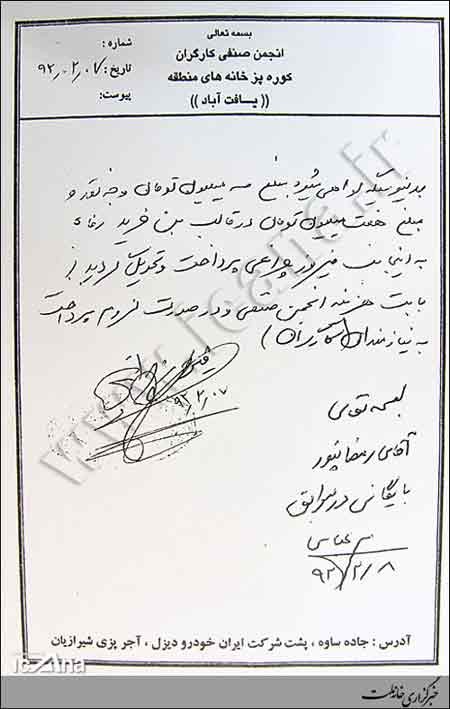 بسمه تعالی
انجمن صنفی کارگران
کوره پز خانه های منطقه
(( یافت آباد ))
شماره :
تاریخ : ۹۲٫۰۲٫۰۷
پیوست:
بدینوسیله گواهی میشود مبلغ سه میلیون تومان وجه نقد و
مبلغ هفت میلیون تومان در قالب بن خرید رفاه
به اینجانب چراغی پرداخت و تحویل گردید (
بابت هزینه انجمن صنفی و در صورت لزوم پرداخت
به نیازمندان کارگران )
۹۲٫۲٫۰۷
بسمه تعالی
آقای رمضانپور
بایگانی در سوابق
عباسی
۹۲/۲/۸
آدرس : جاده ساوه ، پشت شرکت ایران خودرو دیزل ، آجر پزی شیرازیان
www.icana.ir
icana
خبرگزاری خانه ملت